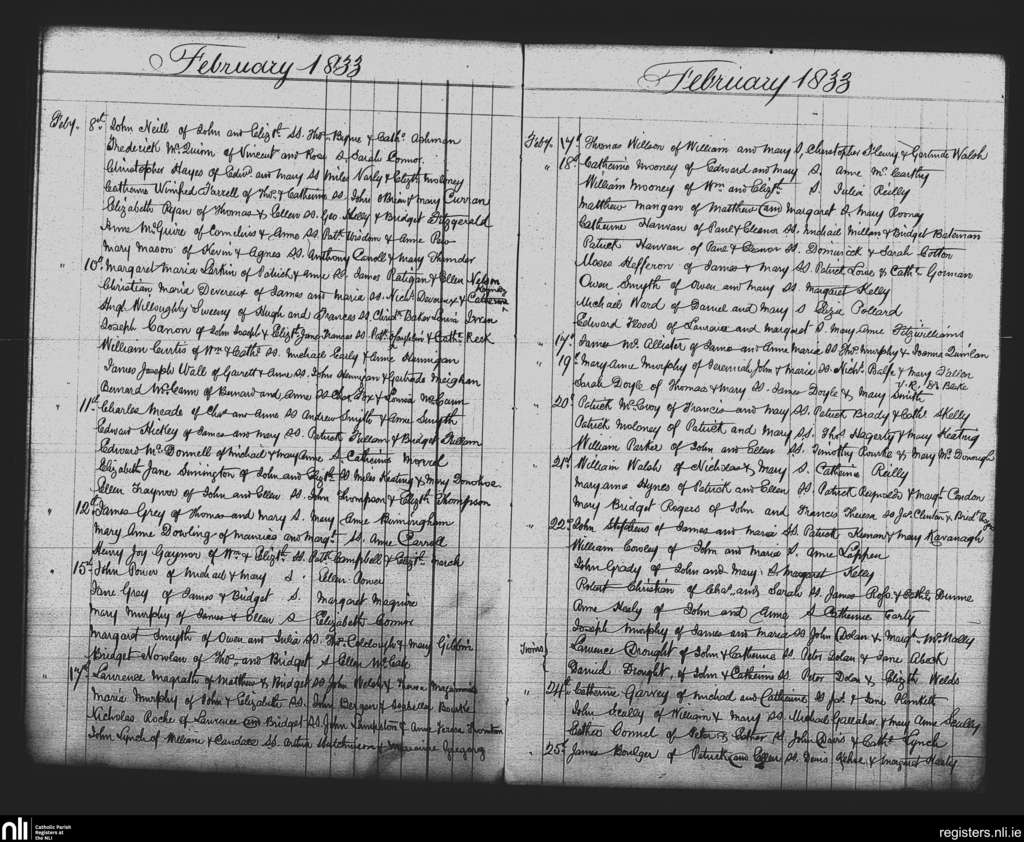 February 1833
Feby. 8th John Neill of John and Elizth. SS. Thos. Byrne & Cathe. Ashman
Frederick McQuinn of Vincent and Rose S. Sarah Connor.
Christopher Hayes of Edwd. and Mary SS Miles Narly & Elizth Moloney
Catherine Winifred Farrell of Thos. & Catherine SS. John OBrien & Mary Curran
Elizabeth Ryan of Thomas & Ellen SS. Geo Kelly & Bridget Fitzgerald
Anne McGuire of Cornelius & Anne SS. Patk. Wisdom & Anne
Mary Mason of Kevin & Agnes SS. Anthony Caroll & Mary Thunder
" 10th Margaret Maria Larkin of Patrick & Anne SS. James Ratigan & Ellen Nelson
Christian Maria Devereux of James and Maria SS. Nichs. Devereux & Catherine
Hugh Willoughby Sweeny of Hugh and Frances SS. Christr. Baker Louisa Irvan
Joseph Canon of John Joseph & Elizth Jane Frances SS. Patk. & Cathe. Reek
William Curtis of Wm. & Cathe. SS. Michael Early & Anne Hannigan
James Joseph Wall of Garett & Anne SS. John Hannigan & Gertrude Meighan
Bernard McCann of Bernard and Anne SS Chas. Fox & Louisa McCann
" 11th Charles Meade of Chas. and Anne SS Andrew Smyth & Anne Smyth
Edward Hickey of James and Mary SS. Patrick Cullen & Bridget Cullen
Edward McDonnell of Michael & Mary Anne S. Catherine Morrel
Elizabeth Jane Simington of John and Elizth SS Miles Keating & Mary Donohoe
Ellen Traynor of John and Ellen SS. John Thompson & Elizth. Thompson
" 12th James Grey of Thomas and Mary S. Mary Anne Burmingham
Mary Anne Dowling of Maurice and Margt. S. Anne Carroll
Henry Joy Gaynor of Wm. & Elizth. SS. Patk. Campbell & Elizth. March
" 15th John Power of Michael & Mary S. Ellen Power
Jane Gray of James & Bridget S. Margaret Maguire
Mary Murphy of James & Ellen S Elizabeth Connor
Margaret Smyth of Owen and Julia SS. Thos. Colclough & Mary Gibbin
Bridget Nowlan of Thos. and Bridget S Ellen McCabe
" 17th Lawrence Magrath of Matthew & Bridget SS John Welsh & Teresa
Maria Murphy of John & Elizabeth SS. John Bergan & Bourke
Nicholas Roche of Laurence and Bridget SS. John Lampston & Anne Teresa Thornton
John Lynch of William & SS. Arthur Hutchinson & Marianne
February 1833
Feby. 17th Thomas Willson of William and Mary S, Christopher Fleury & Gertrude Walsh
" 18th Catherine Mooney of Edward and Mary S. Anne McCarthy
William Mooney of Wm. and Elizth. S. Julia Reilly
Matthew Mangan of Matthew and Margaret S. Mary Rooney
Catherine Hanvan of Paul & Eleanor SS. Michael Millan & Bridget Bateman
Patrick Hanvan of Paul & Eleanor SS. Dominick & Sarah Cotton
Moses Hefferon of James & Mary SS Patrick & Cathe. Gorman
Owen Smyth of Owen and Mary SS. Margaret Kelly
Michael Ward of Daniel and Mary S Eliza Pollard
Edward Flood of and Margaret S. Mary Anne Fitzwilliams
" 17th James McAllister of James and Anne Maria SS Thos. Murphy & Joanna Quinlan
" 19th Mary Anne Murphy of Jeremiah John & Maria SS. Nichs. Balfe & Mary
V. R. Dr. Blake
Sarah Doyle of Thomas & Mary SS. James Doyle & Mary Smith
" 20th Patrick McEvoy of Francis and Mary SS. Patrick Brady & Cathe. Skelly
Patrick Moloney of Patrick and Mary SS. Thos. Hagerty & Mary Keating
William Parker of John and Ellen SS. Timothy Rourke & Mary McDonough
" 21st William Walsh of Nicholas & Mary S. Catherine Reilly
Maryanne Hynes of Patrick and Ellen SS. Patrick Reynolds & Margt. Condon
Mary Bridget Rogers of John and Frances Theresa SS Jas. Clinton & Bridt.
" 22nd John Stephens of James and Maria SS. Patrick Kiernan & Mary Kavanagh
William Cowley of John and Maria S. Anne Lappen
John Grady of John and Mary S. Margaret Kelly
Robert Christian of Chas. and Sarah SS. James Rofe & Cathe. Burne
Anne Healy of John and Anne S. Catherine Early
Joseph Murphy of James and Maria SS John Dolan & Margt. McNally
Twins Laurence Drought of John & Catherine SS. Peter Dolan & Jane Aback
Daniel Drought of John & Catherine SS. Peter Dolan & Elizth Welds
" 24th Catherine Garvey of Michael and Catherine SS Jas. & Jane Plunkett
John Scally of William & Mary SS. Michael Gallaher & Mary Anne Scully
Esther Connel of Peter & Esther SS. John Davis & Cathe. Lynch
" 25th James Boulger of Patrick and Ellen SS. Denis Kehoe & Margaret Healy
nli Catholic Parish
Registers at
the NLI
registers.nli.ie